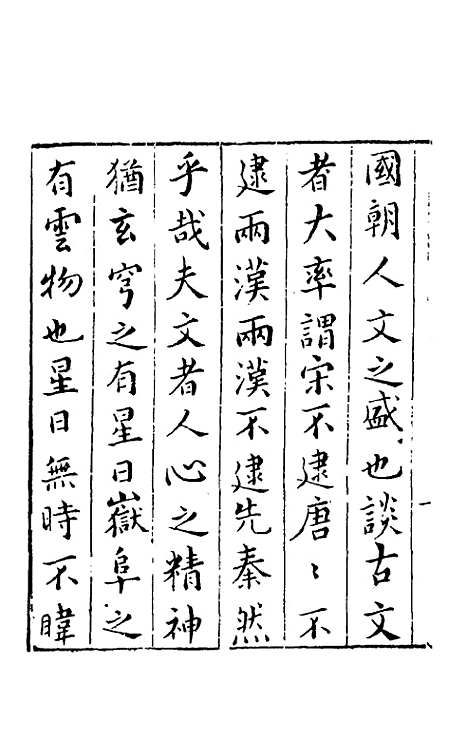 國朝人文之盛也談古文
者大率謂宋不逮唐〻不
逮兩漢兩漢不逮先秦然
乎哉夫文者人心之精神
猶玄穹之有星日嶽阜之
有雲物也星日無時不暐